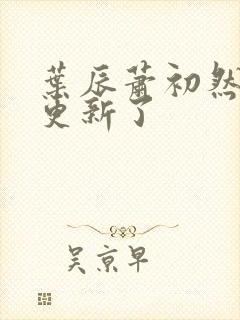 葉辰蕭初然
更新了
吴京早